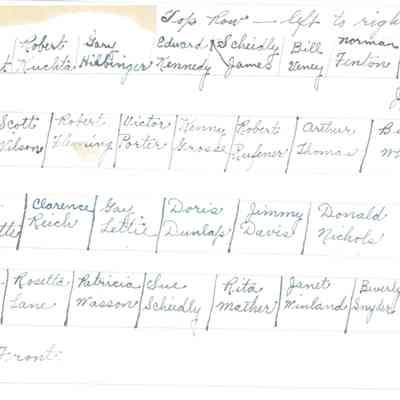 Top Row — left to righ
Robert Gary Edward Scheidly Bill Norman
Kuchta Hilbinger Kennedy James Veney Fenton
Scott Robert Victor Kenny Robert Arthur
Wilson Fleming Porter Grosse Rufener Thomas
Clarence Gay Doris Jimmy Donald
Reich Lettie Dunlap Davis Nichols
Rosetta Patricia Sue Rita Janet Beverly
Lane Wasson Scheidly Mather Winland Snyder
Front